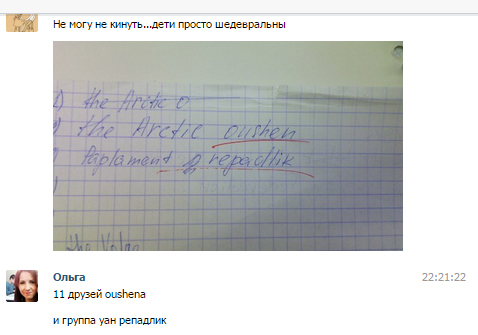 Не могу не кинуть...дети просто шедевральны
the Arctic o
the Arctic oushen
Paplament repadlik
the Volga
Ольга
22:21:22
11 друзей oushena
и группа уан репадлик